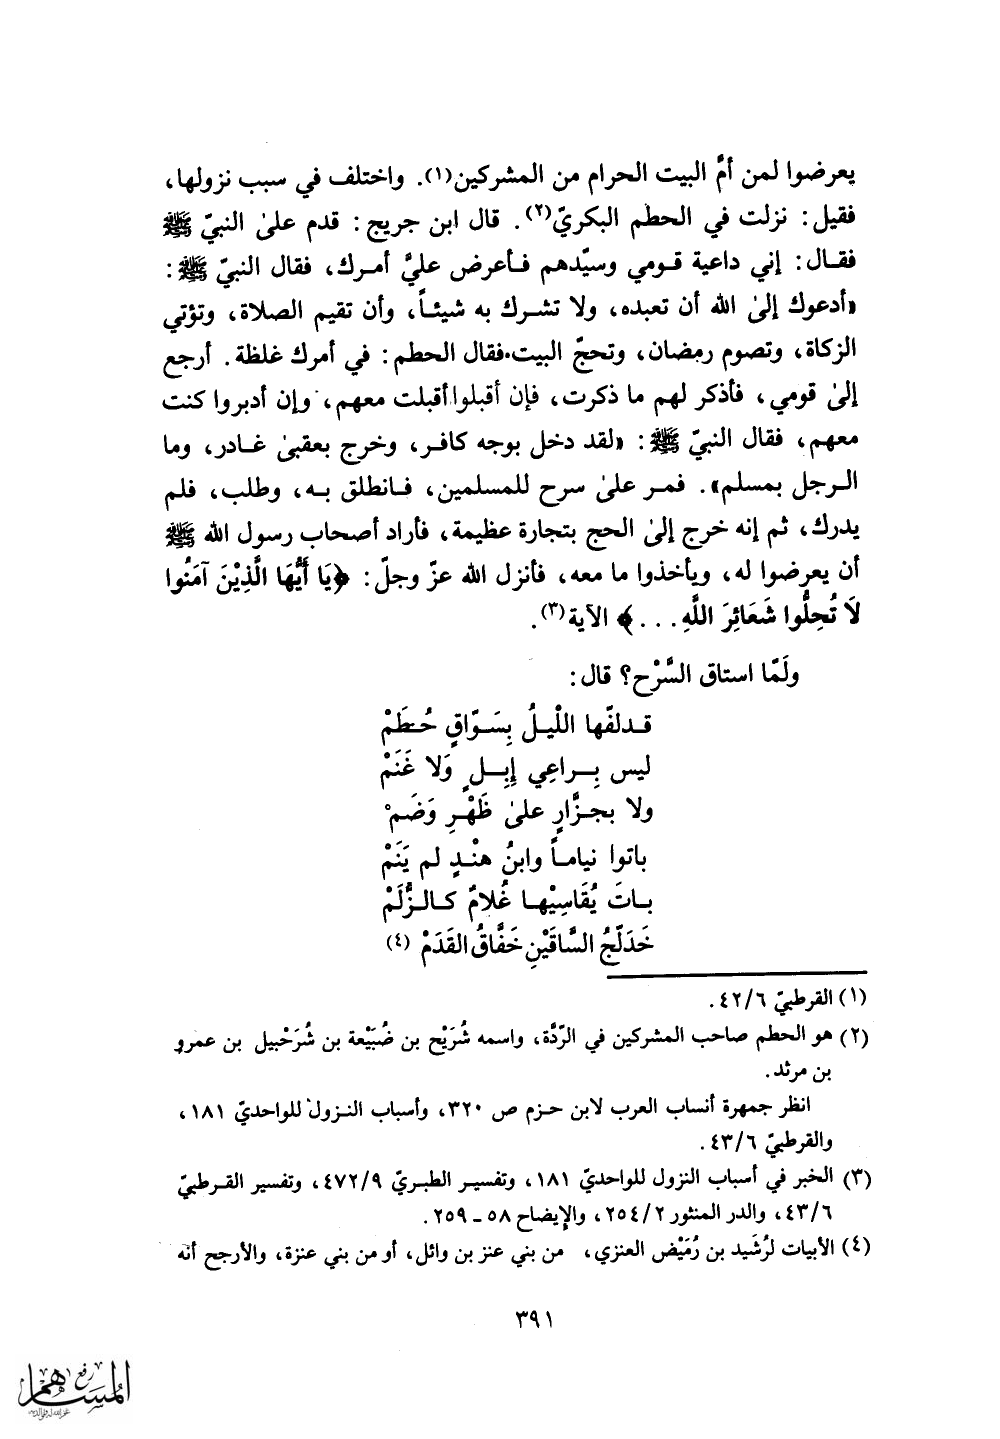 يعرضوا لمن أمَّ البيت الحرام من المشركين(١). واختلف في سبب نزولها،
فقيل: نزلت في الحطم البكريّ(٢). قال ابن جريج: قدم علىٰ النبيّ ﷺ
فقال: إني داعية قومي وسيّدهم فأعرض عليَّ أمرك، فقال النبيّ ﷺ:
«أدعوك إلىٰ الله أن تعبده، ولا تشرك به شيئاً، وأن تقيم الصلاة، وتؤتي
الزكاة، وتصوم رمضان، وتحجّ البيت.فقال الحطم: في أمرك غلظة. أرجع
إلىٰ قومي، فأذكر لهم ما ذكرت، فإن أقبلوا أقبلت معهم، وإن أدبروا كنت
معهم، فقال النبيّ ﷺ: «لقد دخل بوجه كافر، وخرج بعقبىٰ غادر، وما
الرجل بمسلم». فمر علىٰ سرح للمسلمين، فانطلق به، وطلب، فلم
يدرك، ثم إنه خرج إلىٰ الحج بتجارة عظيمة، فأراد أصحاب رسول الله ﷺ
أن يعرضوا له، ويأخذوا ما معه، فأنزل الله عزّ وجلّ: ﴿يَا أَيُّهَا الَّذِيْنَ آمَنُوا
لَا تُحِلُّوا شَعَائِرَ اللَّهِ...﴾ الآية(٣).
ولَمّا استاق السَّرْح؟ قال:
قد لفّها اللْيلُ بِسَوّاقٍ حُطَمْ
ليس بِراعِي إِبِلٍ وَلا غَنَمْ
ولا بجزَّارٍ علىٰ ظَهْرِ وَضَمْ
باتوا نياماً وابنُ هنْدٍ لم يَنَمْ
باتَ يُقَاسِيْها غُلامٌ كالزُّلَمْ
خَدَلّجُ السَّاقَيْنِ خَفَّاقُ القَدَمْ (٤)
(١) القرطبيّ ٤٢/٦.
(٢) هو الحطم صاحب المشركين في الرّدَّة، واسمه شُرَيْح بن ضُبَيْعة بن شُرَحْبيل بن عمرو
بن مرثد.
انظر جمهرة أنساب العرب لابن حزم ص ٣٢٠، وأسباب النزول للواحديّ ١٨١،
والقرطبيّ ٤٣/٦.
(٣) الخبر في أسباب النزول للواحديّ ١٨١، وتفسير الطبريّ ٤٧٢/٩، وتفسير القرطبيّ
٤٣/٦، والدر المنثور ٢٥٤/٢، والإيضاح ٥٨ - ٢٥٩.
(٤) الأبيات لرُشَيد بن رُمَيْض العنزي، من بني عنز بن وائل، أو من بني عنزة، والأرجح أنه
٣٩١
رفع
المساهم